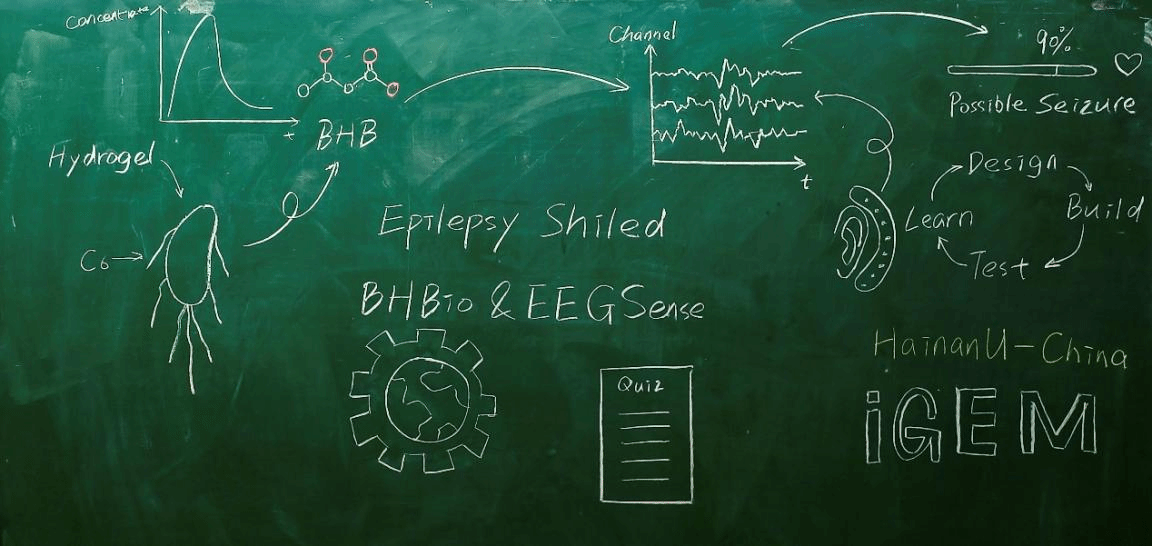 Concentrate
t
BHB
Hydrogel
C6
Channel
t
90%
Possible Seizure
Design
Build
Test
Learn
Epilepsy Shiled
BHBio & EEGSense
Quiz
HainanU-China
iGEM